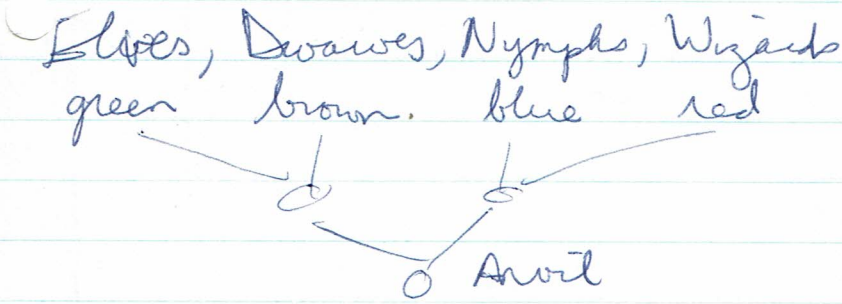 Elves, Dwarves, Nymphs, Wizards
green brown. blue red
Anvil